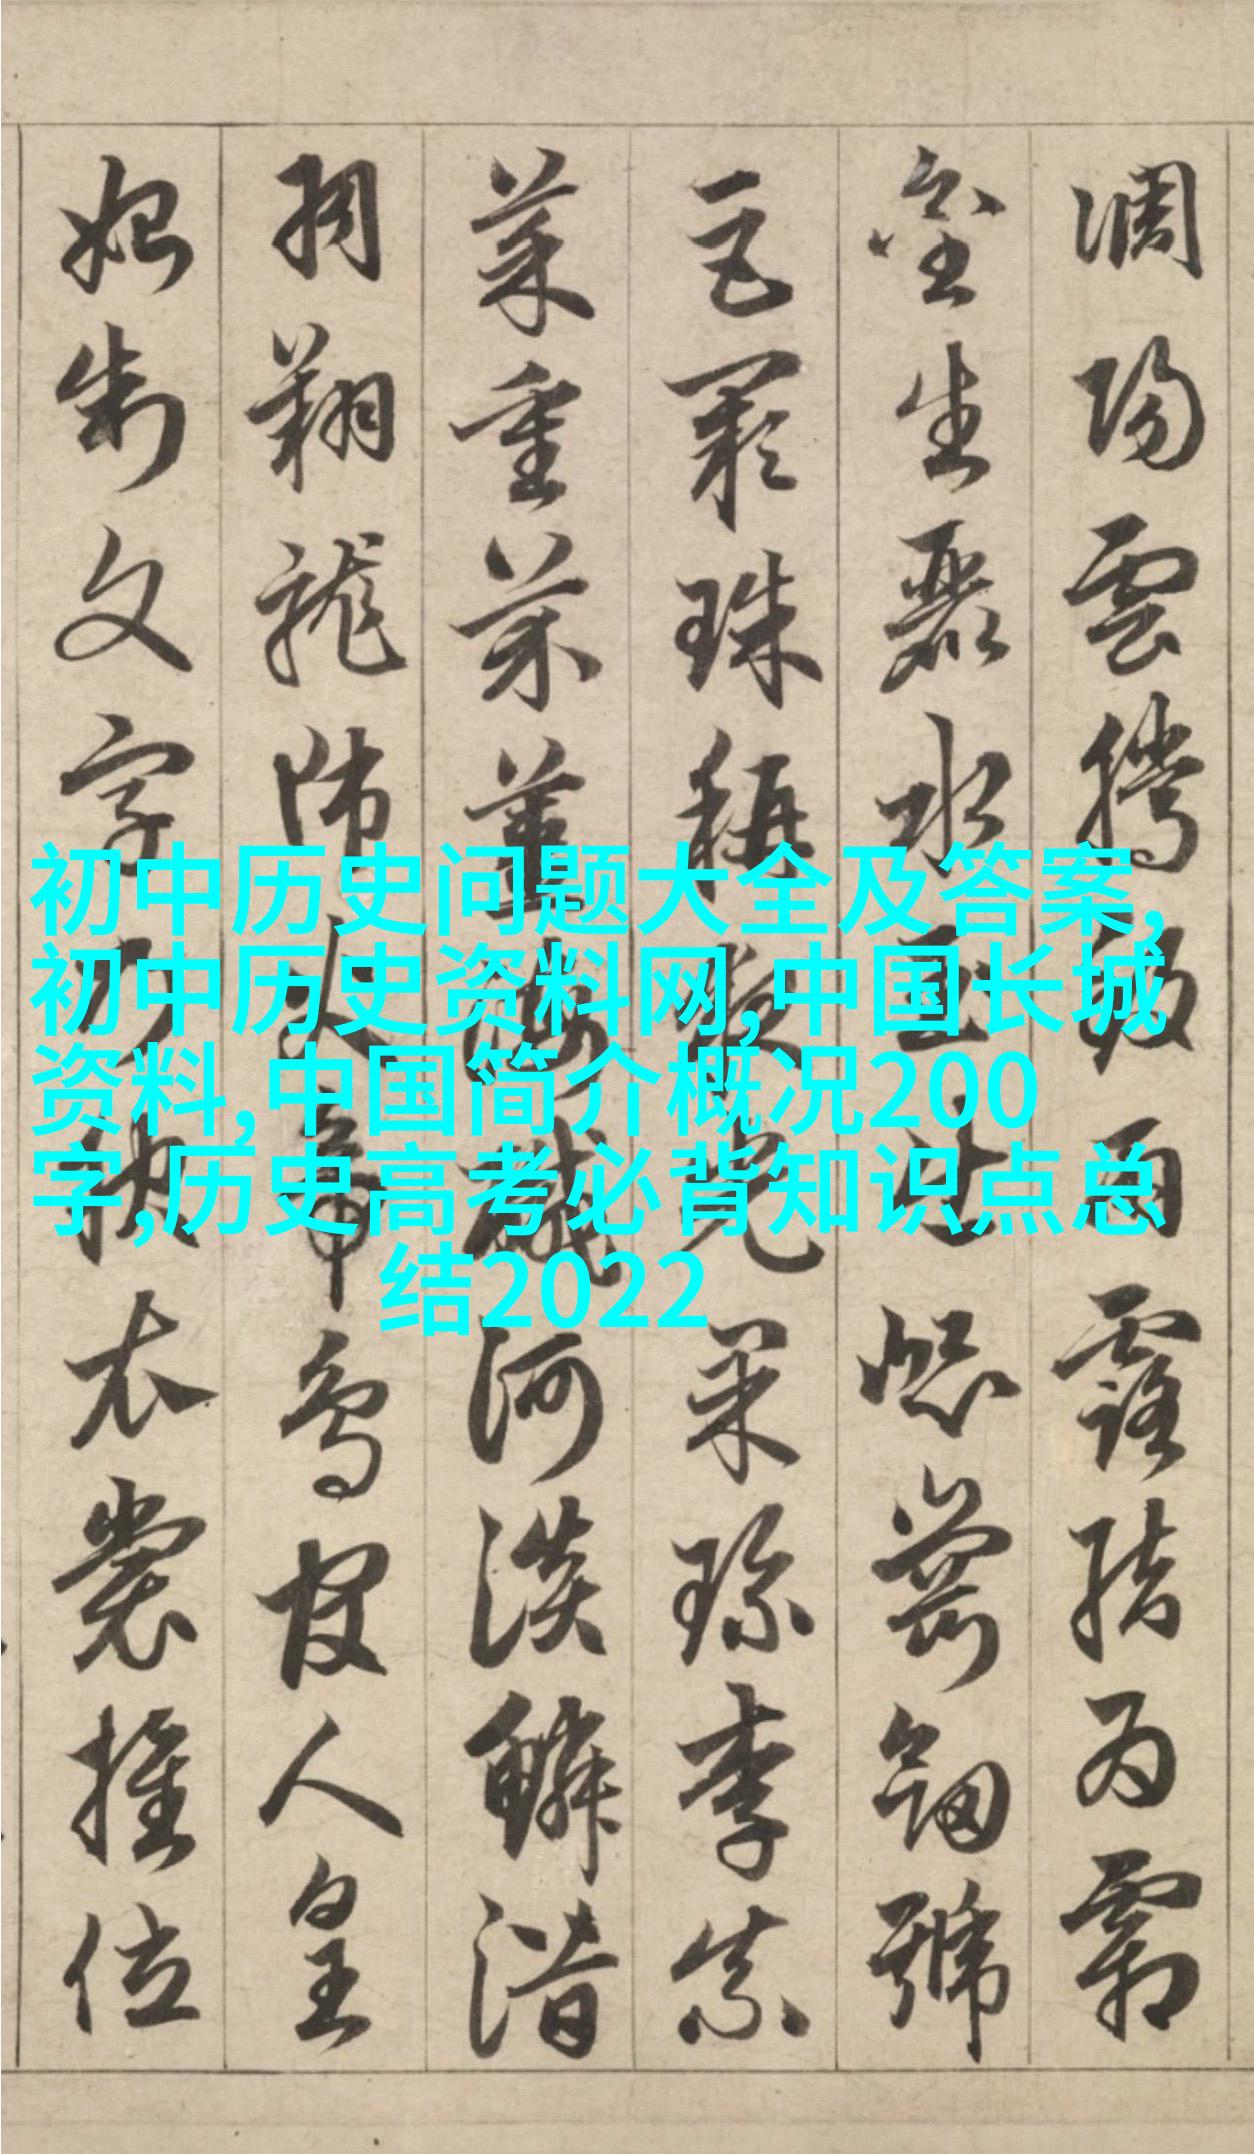 調陽雲騰致雨露結為霜
金生麗水玉出崑崗劍號
巨闕珠稱夜光果珍李柰
菜重芥薑海鹹河淡鱗潛
羽翔龍師火帝鳥官人皇
始制文字乃服衣裳推位
初中历史问题大全及答案,
初中历史资料网,中国长城
资料,中国简介概况200
字,历史高考必背知识点总
结2022